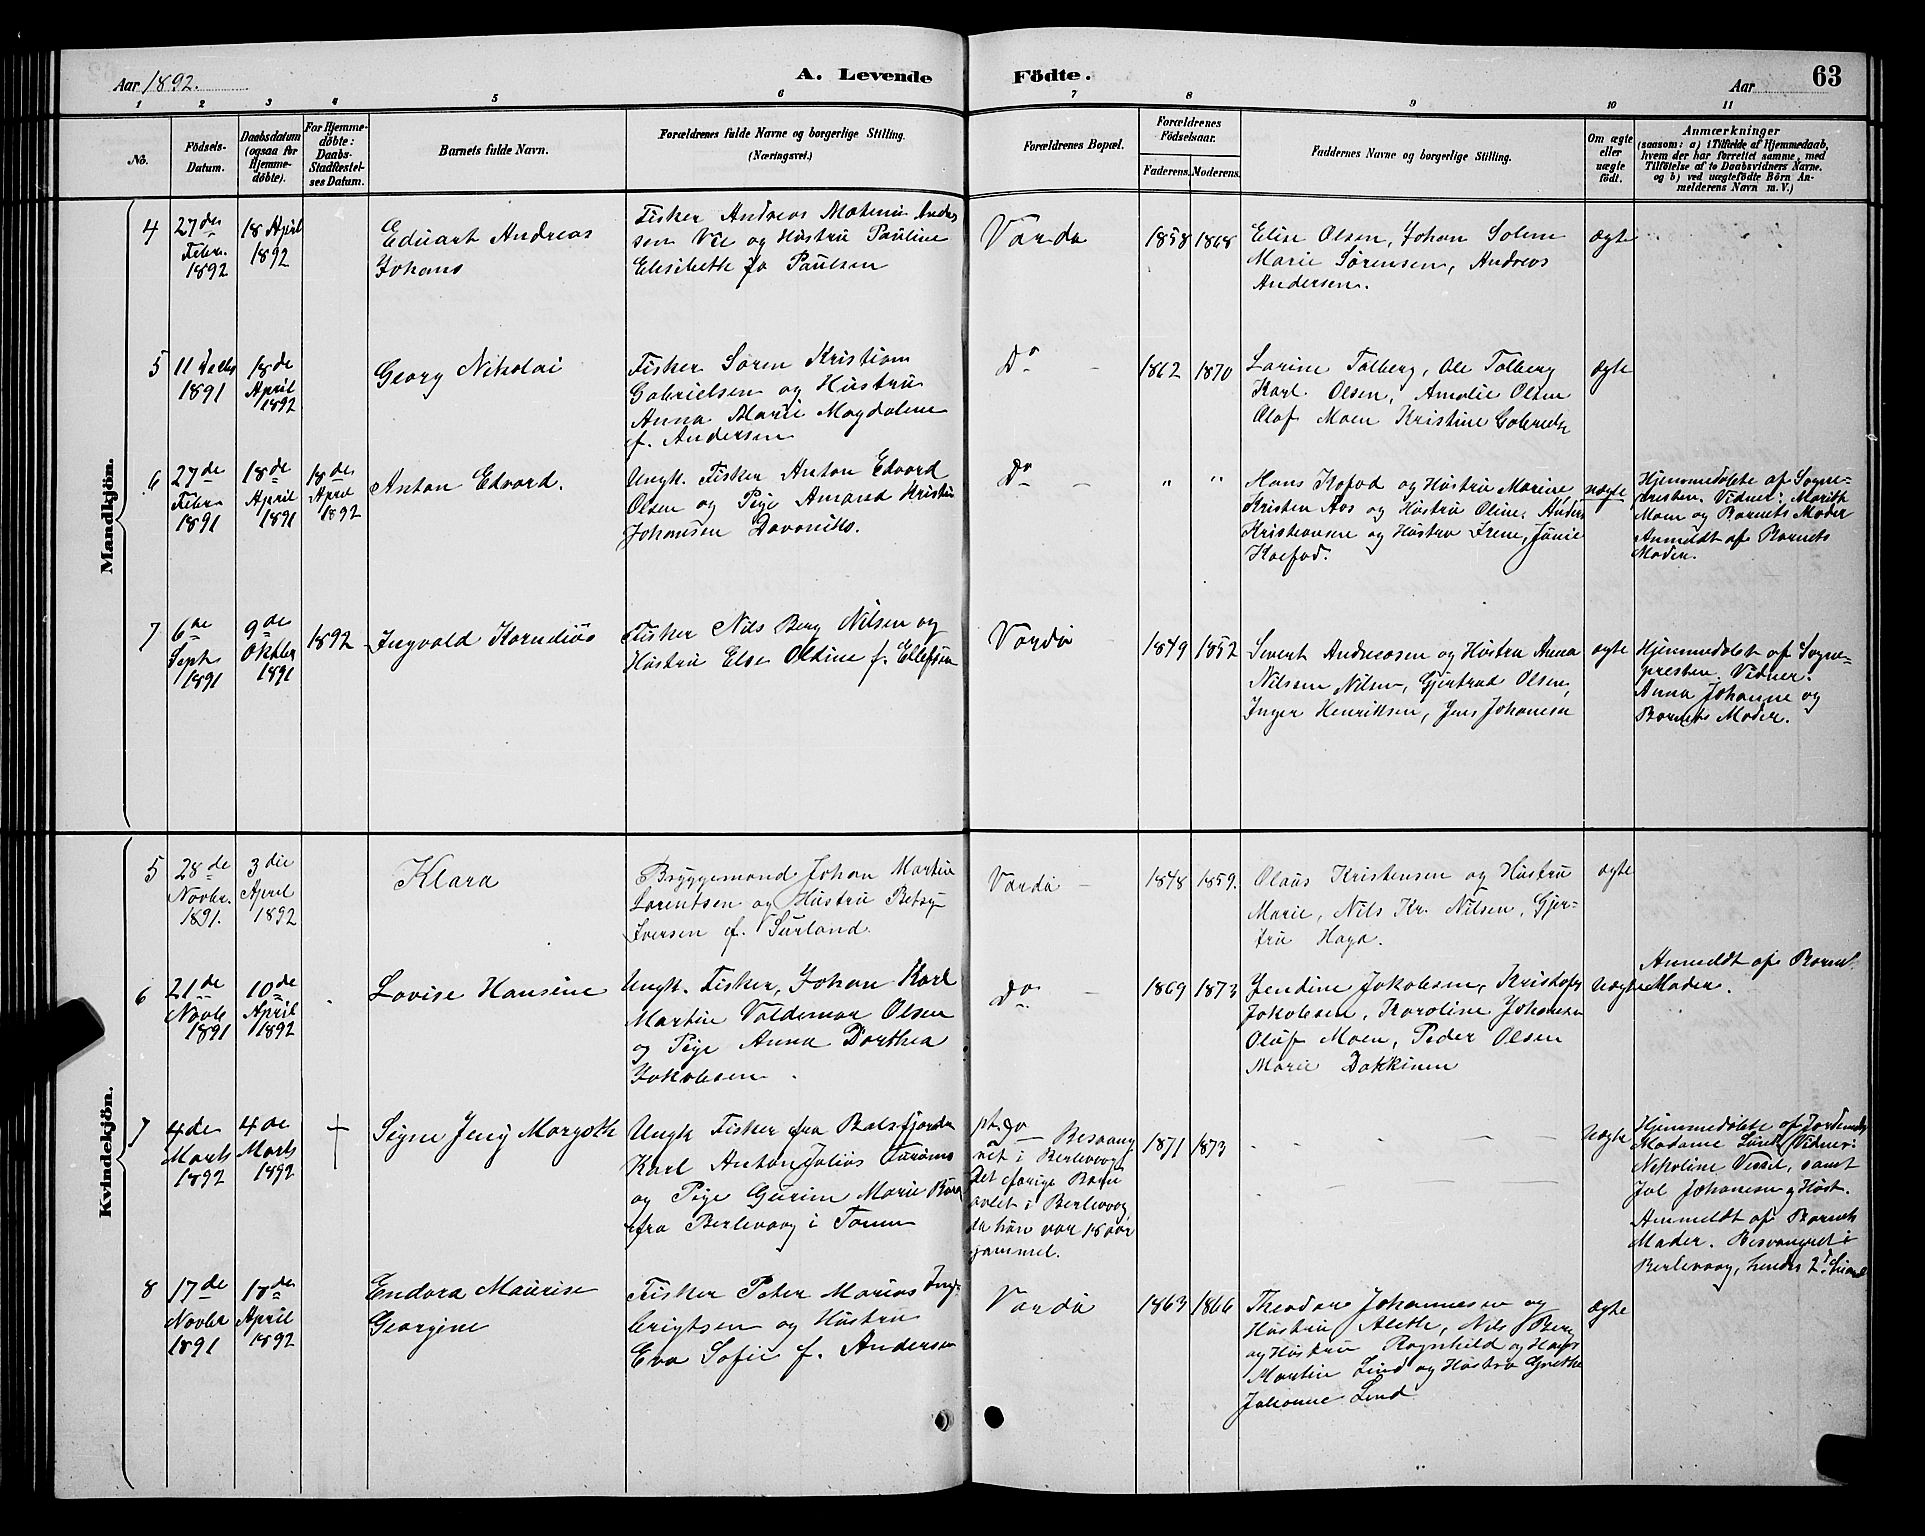 Aar 1892.
A. Levende
Födte.
Aar
63
1 2 3 4 5 6 7 8 9 10 11
No.
Födsels-
Datum.
Daabsdatum
(ogsaa for
Hjemme-
döbte).
For Hjemme-
döbte:
Daabs-
Stadfæstel-
ses Datum.
Barnets fulde Navn.
Forældrenes fulde Navne og borgerlige Stilling.
(Næringsvei.)
Forældrenes Bopæl.
Forældrenes
Födselsaar.
Faderens.
Moderens.
Faddernes Navne og borgerlige Stilling.
Om ægte
eller
uægte
födt.
Anmærkninger
(saasom: a) i Tilfælde af Hjemmedaab,
hvem der har forrettet samme, med
Tilföielse af to Daabsvidners Navne,
og b) ved uægtefödte Börn An-
melderens Navn m. V.)
Mandkjön.
4
27de
Febr.
1892
18 April
1892
Eduart Andreas
Johans
Fisker Andreas
sen og Hustru Pauline
Elisibeth Paulsen
Vardø
1858
1868
Elise Olsen, Johan Solem
Marie Sørensen, Andreas
Andersen.
ægte
5
11 Decbr
1891
18de
April
1892
Georg Nikolai
Fisker Søren Kristian
Gabrielsen og Hustru
Anna Marie Magdalene
f. Andersen
Do
1862
1870
Larine Tolberg, Ole Tolberg
Karl Olsen, Amalie Olsen
Olaf Moen Kristine
ægte
6
27de
Febr
1891
18de
April
1891
18de
April
1892
Anton Edvard.
Ungk. Fisker Anton Edvard
Olsen og Pige Amand Kristin
Johansen
Do
" "
Hans Kofod og Hustru Marine
Kristen Aas og Hustru Oline, Anders
Kristiansen og Hustru Irene,
Koefod.
uægte
Hjemmedøbte af Sogne-
presten. Vidner: Marith
Moen og Barnets Moder
Anmeldt af Barnets
Moder.
7
6de
Septr
1891
9de
Oktbr
1891
1892
Ingvald Kornelius
Fisker Nils Berg Nilsen og
Hustru Else Oldine f. Ellefsen
Vardø
1849
1852
Sivert Andreasen og Hustru Anna
Nilsen, Gjertrud Olsen,
Inger Henriksen, Jens Johansen
ægte
Hjemmedøbt af Sogne-
presten. Vidner:
Anna Johanne og
Barnets Moder.
Kvindekjön.
5
28de
Novbr.
1891.
3die
April
1892
Klara
Bryggemand Johan Martin
Lorentsen og Hustru Betsy
Iversen f.
Vardø
1848
1859.
Olaus Kristensen og Hustru
Marie, Nils Kr. Nilsen, Gjer-
tru Haga.
ægte
6
21de
Novb
1891
10de
April
1892
Lovise Hansine
Ungk. Fisker, Johan Karl
Martin Valdemar Olsen
og Pige Anna Dorthea
Jakobsen.
Do
1869
1873
Jendine Jakobsen, Kristofer
Jakobsen, Karoline Johansen
Oluf Moen, Peder Olsen
Marie Dakkinen
Uægte
Anmeldt af Barnets
Moder.
7
4de
Marts
1892
4de
Marts
1892
†
Signe Jeny Margoth
Ungk Fisker fra Balsfjorden
Karl Anton Julius
og Pige Gurine Marie
fra Berlevaag i Tanen
pt. do Besvang
ret i Berlevaag
Det forige Barn
avlet i Berlevaag,
da hun var 18 aar
gammel.
1871
1873
Uægte
Hjemmedøbte af Jordemor
Madame Lund (Vidner:
Nikoline Vessel, samt
Johansen og Hust.
Anmeldt af Barnets
Moder. Besvangret i
Berlevaag, hendes 2d
8
17de
Novbr
1891
18de
April
1892
Endora Maurise
Georgine
Fisker Peter Marius Ing-
brigtsen og Hustru
Eva Sofie f. Andersen
Vardø
1863
1866
Theodor Johannesen og
Hustru Alethe, Nils Berg
og Hustru Ragnhild og Hans
Martin Lind og Hustru Grethe
Johanne Lind
ægte